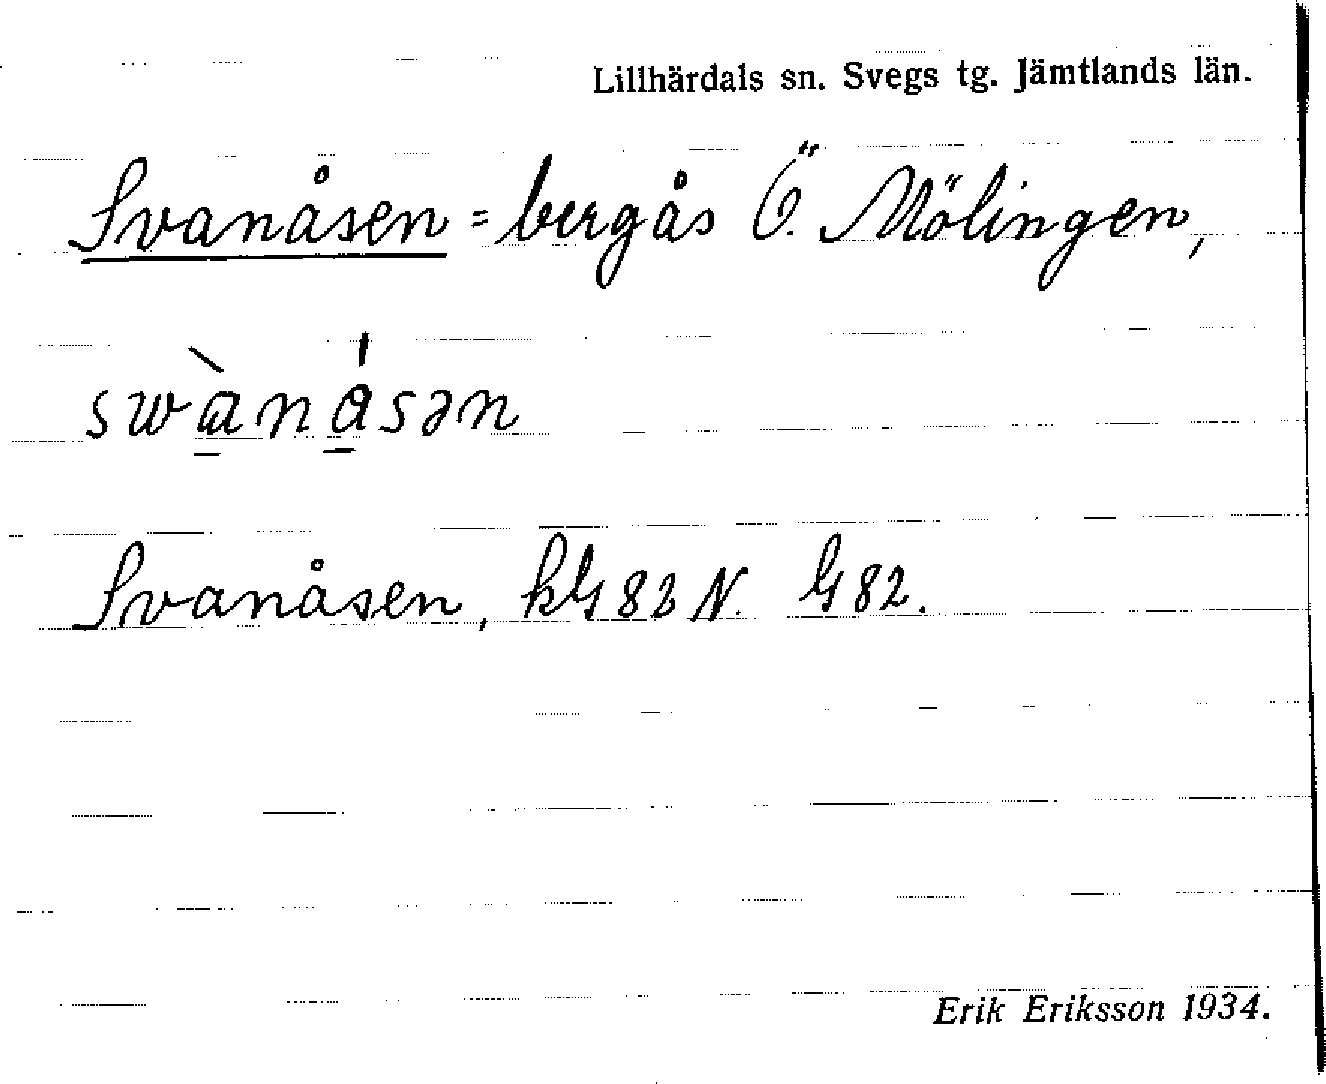 Lillhärdals sn. Svegs tg. Jämtlands län.
Svanåsen = bergås Ö. Mölingen,
swànásən
Svanåsen, kG 82 N. G 82.
Erik Eriksson 1934.